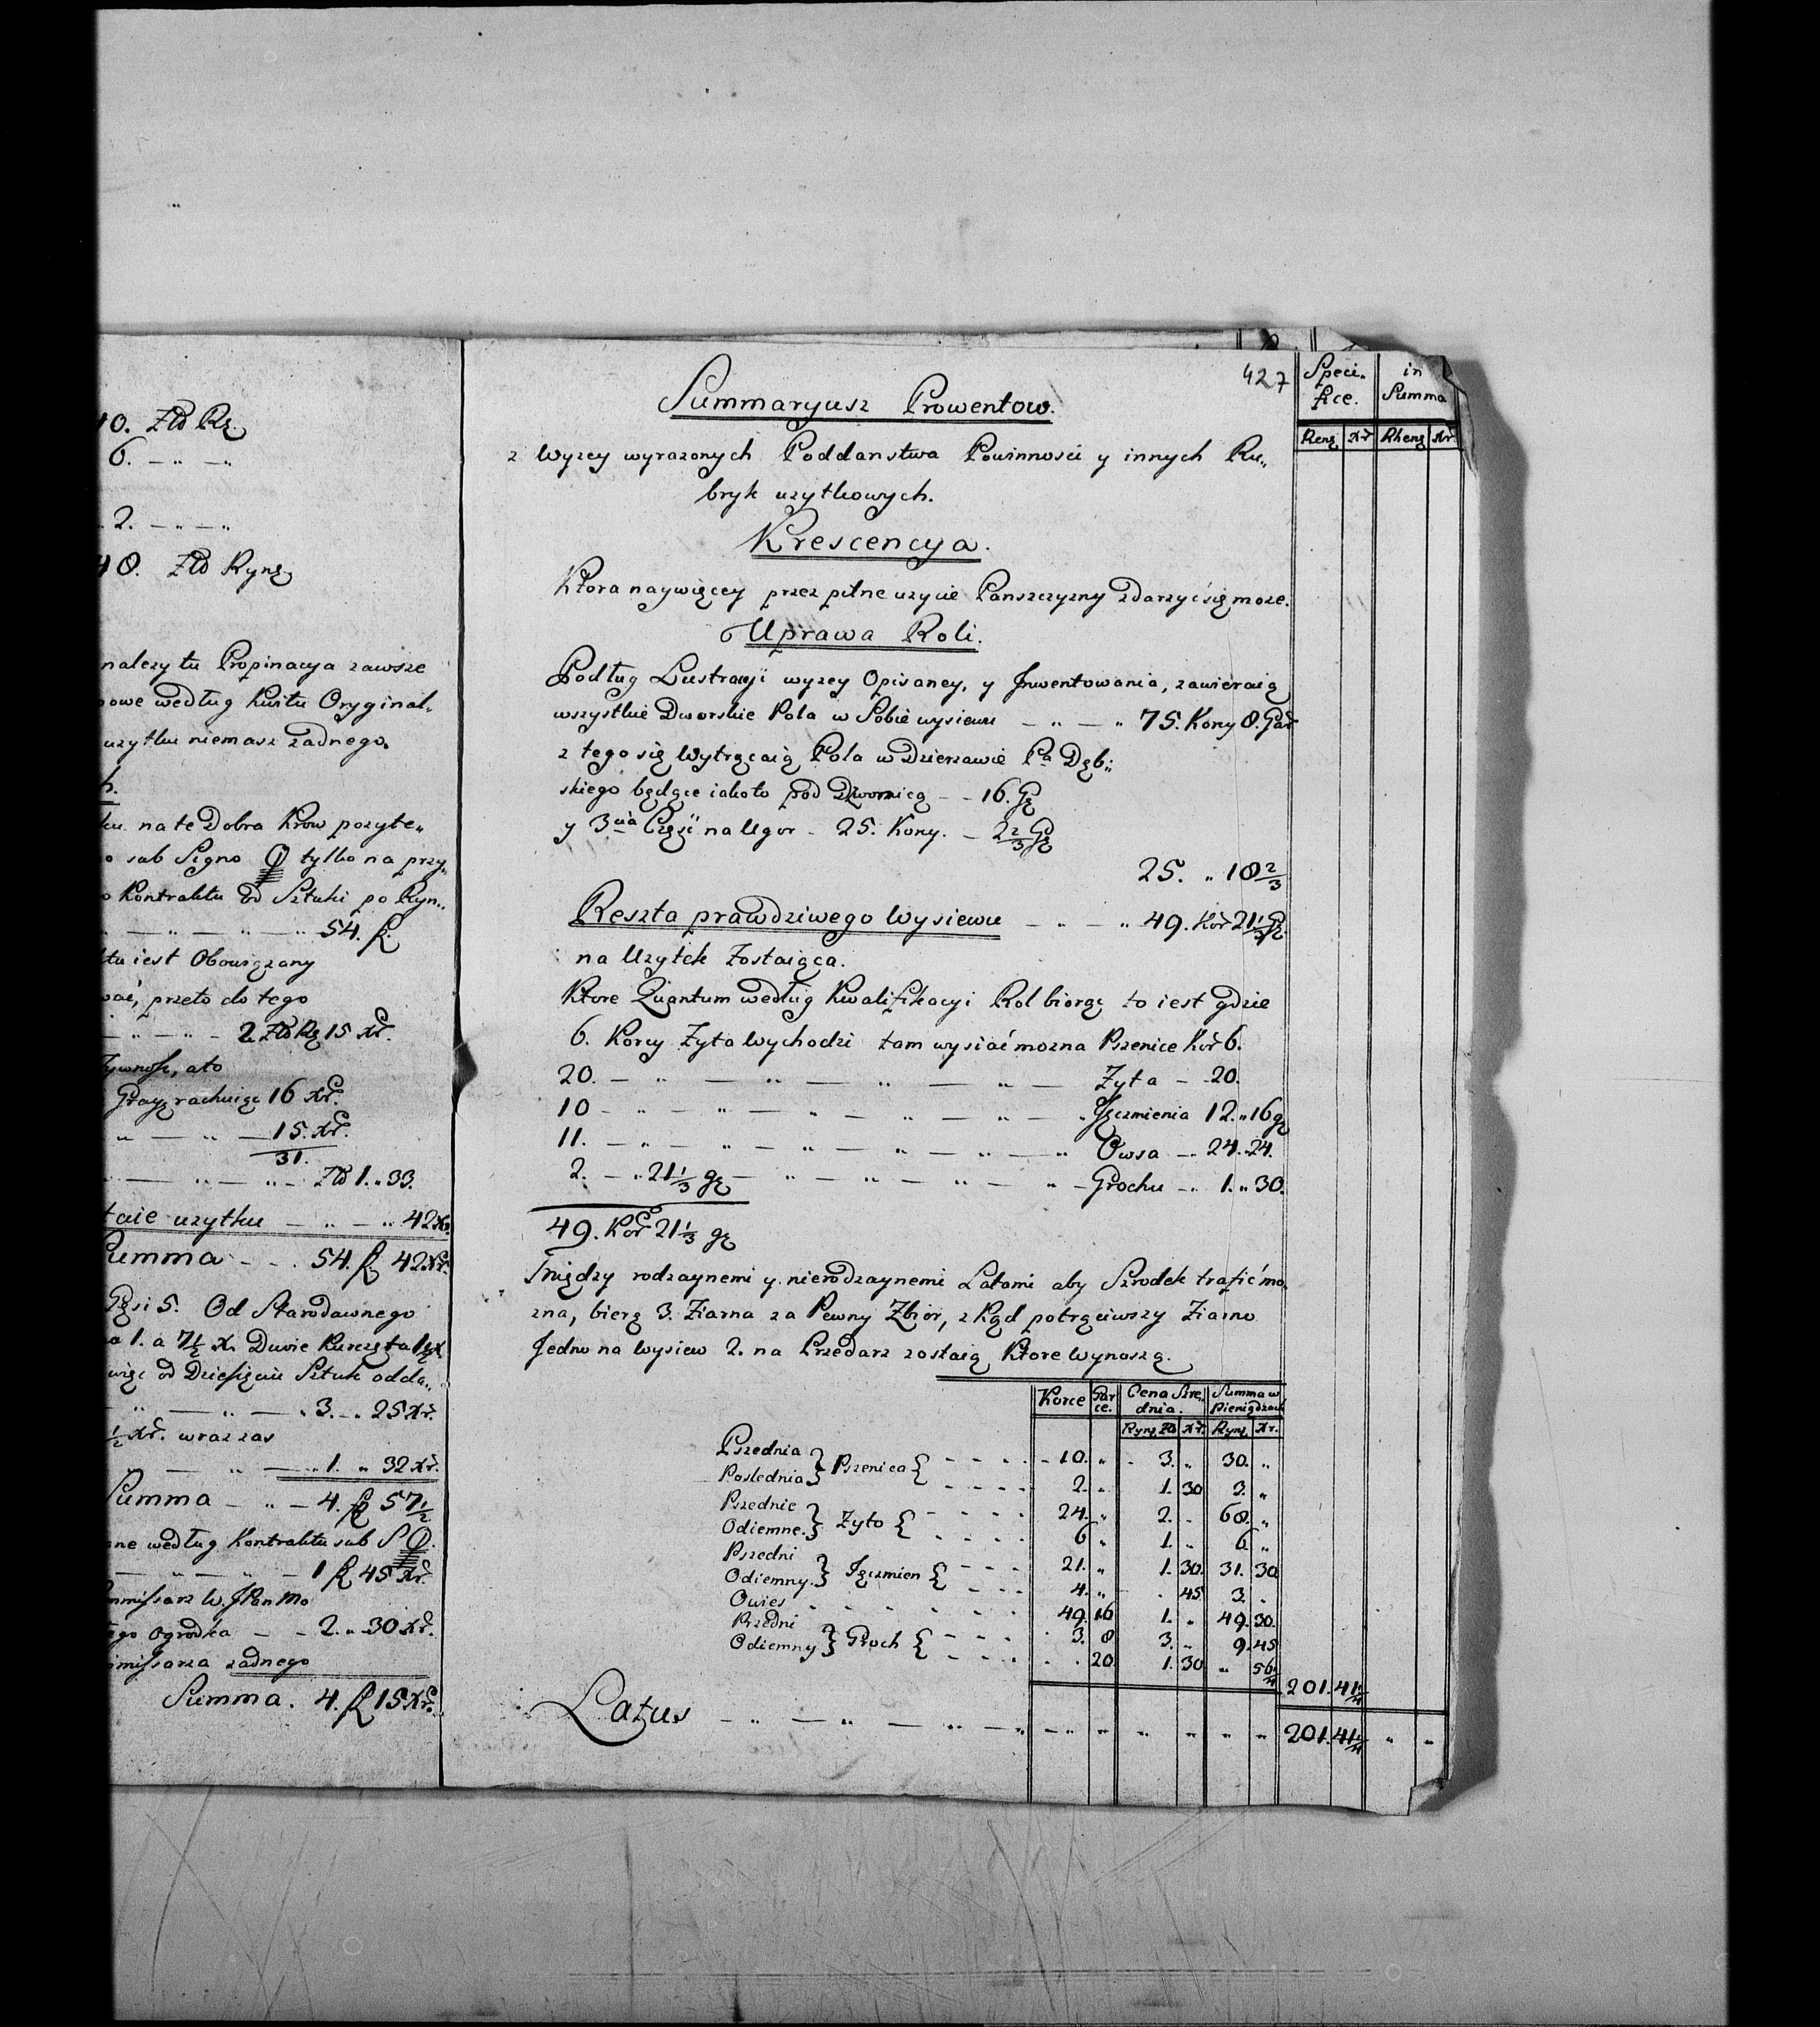 40. Złd Rę
6. — " —
2. — " — "
48. Złd Rynz
należy tu Propinacya zawsze
powe według kwitu Oryginal„
uzytku niemasz zadnego.
na te Dobra Krow pozyte„
sub Signo tylko na przy„
Kontraktu od Sztuki po Ryn„
— " — " — " 54. f.
tu iest Obowiązany
przeto do tego
— " — " — 2. Złd Rę 15 xr.
ato
Grayz rachuiąc 16 xr.
" — " — 15. xr.
31.
— " — " — Złd 1. " 33.
uzytku — " — " 42 xr.
Summa - - . 54. f 42 xr.
Gęsi 5. Od Starodawnego
1. a 7½ x. Dwie Kurczęta
od Dziesięciu Sztuk odda„
" — " — " 3. " 25 xr.
½ xr. wraz zas
— " — " 1. " 32 xr.
Summa — " — 4. f 57½
według Kontraktu sub S
— " — " — 1 f 45 xr.
W. JPan Mo
ogrodka — - 2. " 30 xr.
zadnego
Summa. 4. f 15 xr.
427
Summaryusz Prowentow.
z Wyzey wyrazonych Poddanstwa Powinnosci y innych Ru„
bryk uzytkowych.
Krescencya.
Ktora naywięcey przez pilne uzycie Panszczyzny zdarzyć się moze.
Uprawa Roli.
Podług Lustracyi wyzey Opisaney, y Inwentowania, zawieraią
wszystkie Dworskie Pola w Sobie wysiewu — " — " 75. Korcy 8. Gar
z tego się Wytrącaią Pola w Dzierzawie Pa Dęb„
skiego będące iako to pod Dwornicą - - 16. Gę
y 3cia Częsć na Ugor - 25. Korcy. — 2 2/3 Gę
25. " 18 2/3
Reszta prawdziwego Wysiewu — " — " 49. Kor 21 1/3 Gę.
na Uzytek Zostaiąca.
Ktore Quantum według Kwalifikacyi Rol biorąc to iest gdzie
6. Korcy Zyta Wychodzi tam wysiać mozna Pszenice Kor 6.
20. — " — " — " — " — Zyta — 20.
10 — " — " — " — " — " — Jęczmienia 12. " 16 gę
11. — " — " — " — " — " — " Owsa — 24. 24.
2. — " 21 1/3 gę — " — " — " — " — Grochu — 1. " 30.
49. Kor 21 1/3 gę
Między rodzaynemi y nierodzaynemi Latami aby Szrodek trafić mo„
zna, bierę 3. Ziarna za Pewny Zbior, z kąd potrąciwszy Ziarno
Jedno na Wysiew 2. na Przedarz zostaią Ktore Wynoszą.
Speci„ fice. in Summa
Renz xr Rhenz xr.
Korce Gar ce. Cena Szre„ dnia. Summa w Pieniądzach
Rynz Zł xr. Rynz xr.
Pszednia } Pszenica { - - - - 10. " - 3. " 30. "
Poslednia - - - - 2. " 1. 30 3. "
Pszednie } Zyto { - - - - 24. " 2. - 68. "
Odiemne. - - - - 6 " 1. " 6 "
Pszedni } Jęczmien { - - - 21. " 1. 30. 31. 30
Odiemny. - - - 4. " . 45 3. .
Owies - - - - - - 49. 16 1. " 49. 30.
Przedni } Groch { - - - 3. 8 3. " 9. 45
Odiemny - - - - . 20. 1. 30 " 56 1/4
201. 41 1/4
Latus — " — " — " — " — " " " " " " 201. 41 1/4 " "